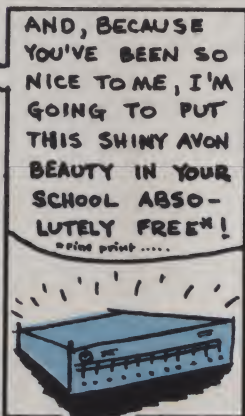 AND, BECAUSE
YOU'VE BEEN SO
NICE TO ME, I'M
GOING TO PUT
THIS SHINY AVON
BEAUTY IN YOUR
SCHOOL ABSO-
LUTELY FREE*!
*Fine print.....